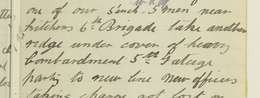 one of our 5 men near
6th Brigade take another
ridge under cover of heavy
Bombardment 5th Fatigue
party to new line new officers
taking charge not lost